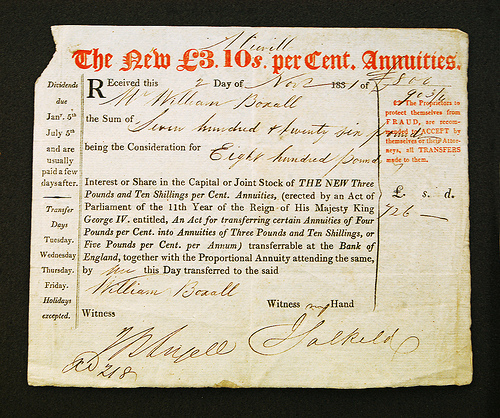 The New £3. 10s. per Cent. Annuities.
Dividends
due
Janʸ. 5ᵗʰ
July 5ᵗʰ
and are
usually
paid a few
days after.
Transfer
Days
Tuesday.
Wednesday
Thursday.
Friday.
Holidays
excepted.
REceived this 2 Day of Novr 1831 of
Mr William Boxall
the Sum of Seven hundred & twenty six pound
being the Consideration for
Eight hundred Pound
Interest or Share in the Capital or Joint Stock of THE NEW Three
Pounds and Ten Shillings per Cent. Annuities, (erected by an Act of
Parliament of the 11th Year of the Reign of His Majesty King
George IV. entitled, An Act for transferring certain Annuities of Four
Pounds per Cent. into Annuities of Three Pounds and Ten Shillings, or
Five Pounds per Cent. per Annum) transferrable at the Bank of
England, together with the Proportional Annuity attending the same,
by me this Day transferred to the said
William Boxall
Witness my Hand
Witness
J Salkeld
218
£800
90 3/4
The Proprietors to
protect themselves from
FRAUD, are recom-
ACCEPT by
themselves or their Attor-
neys, all TRANSFERS
made to them.
£. s. d.
726